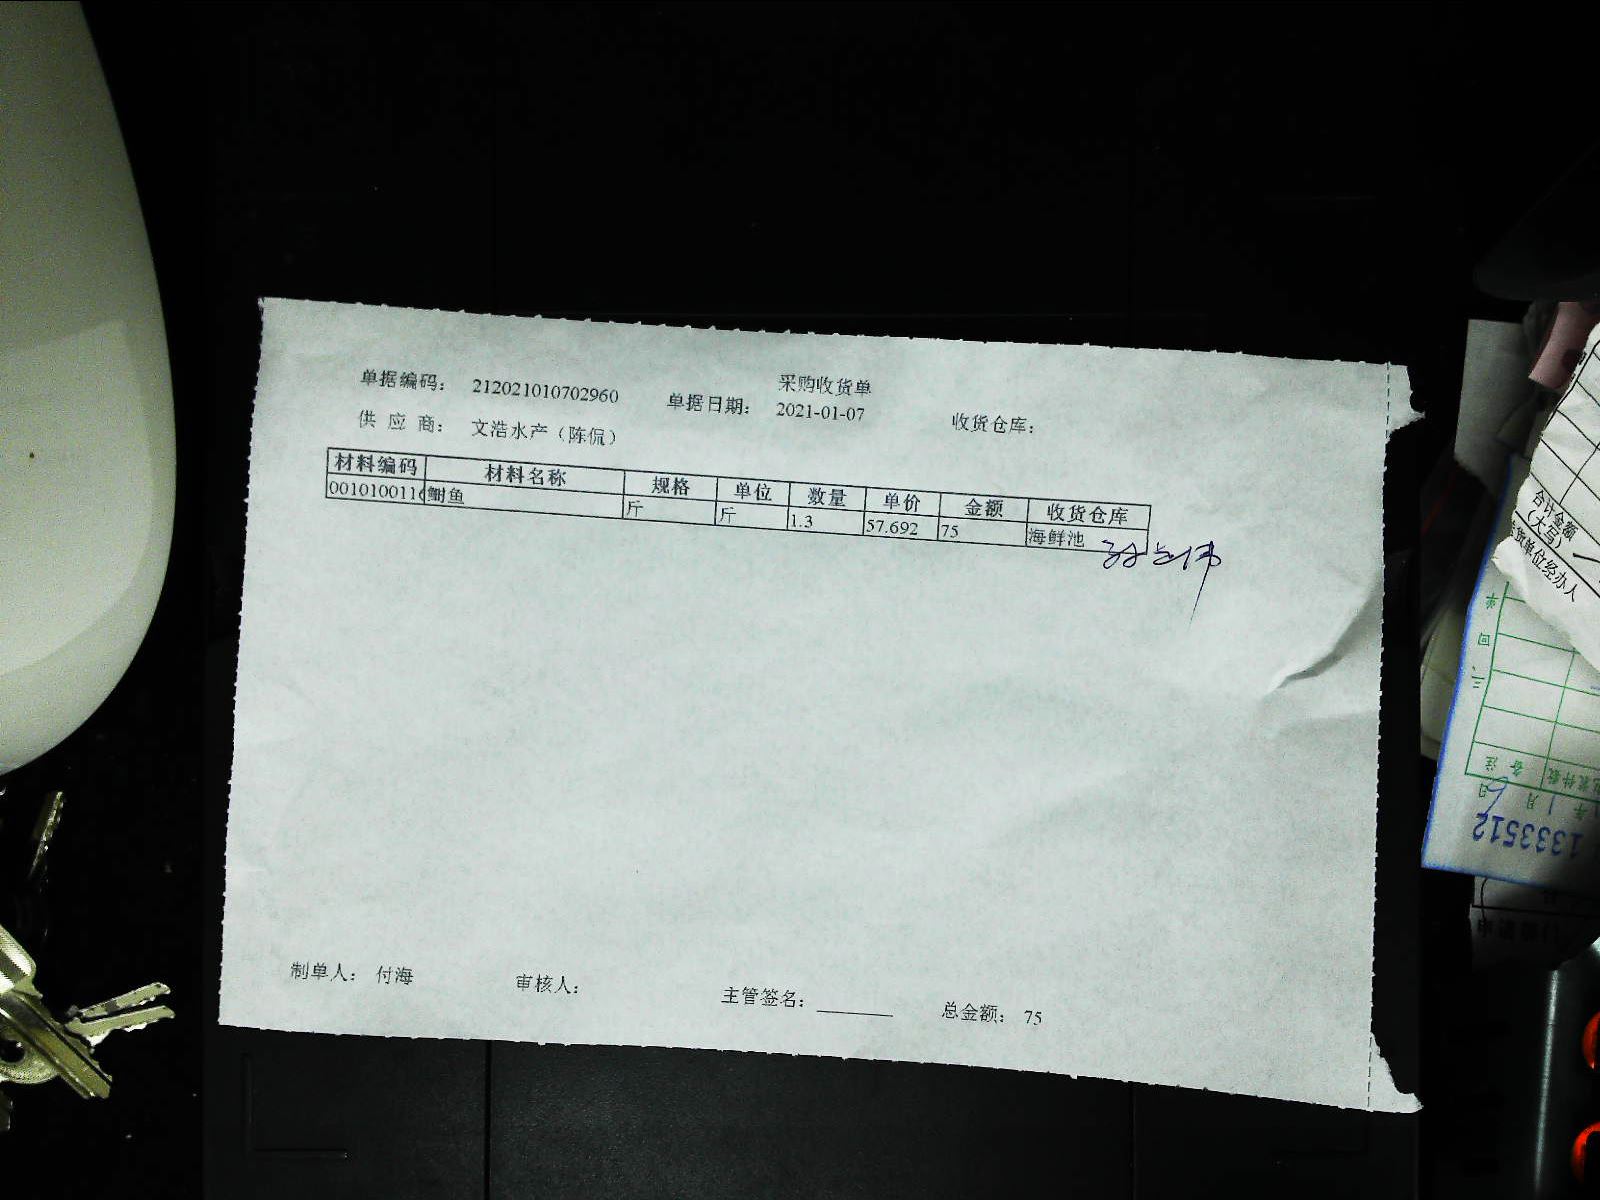 采购收货单
单据编码： 212021010702960 单据日期： 2021-01-07 收货仓库：
供 应 商： 文浩水产（陈侃）
材料编码 材料名称 规格 单位 数量 单价 金额 收货仓库
001010011 鲥鱼 斤 斤 1.3 57.692 75 海鲜池
制单人： 付海 审核人： 主管签名： 总金额： 75
合计金额
（大写）
货单位经办人
三 回 单
备 注
年 1 月 6 日
1333512